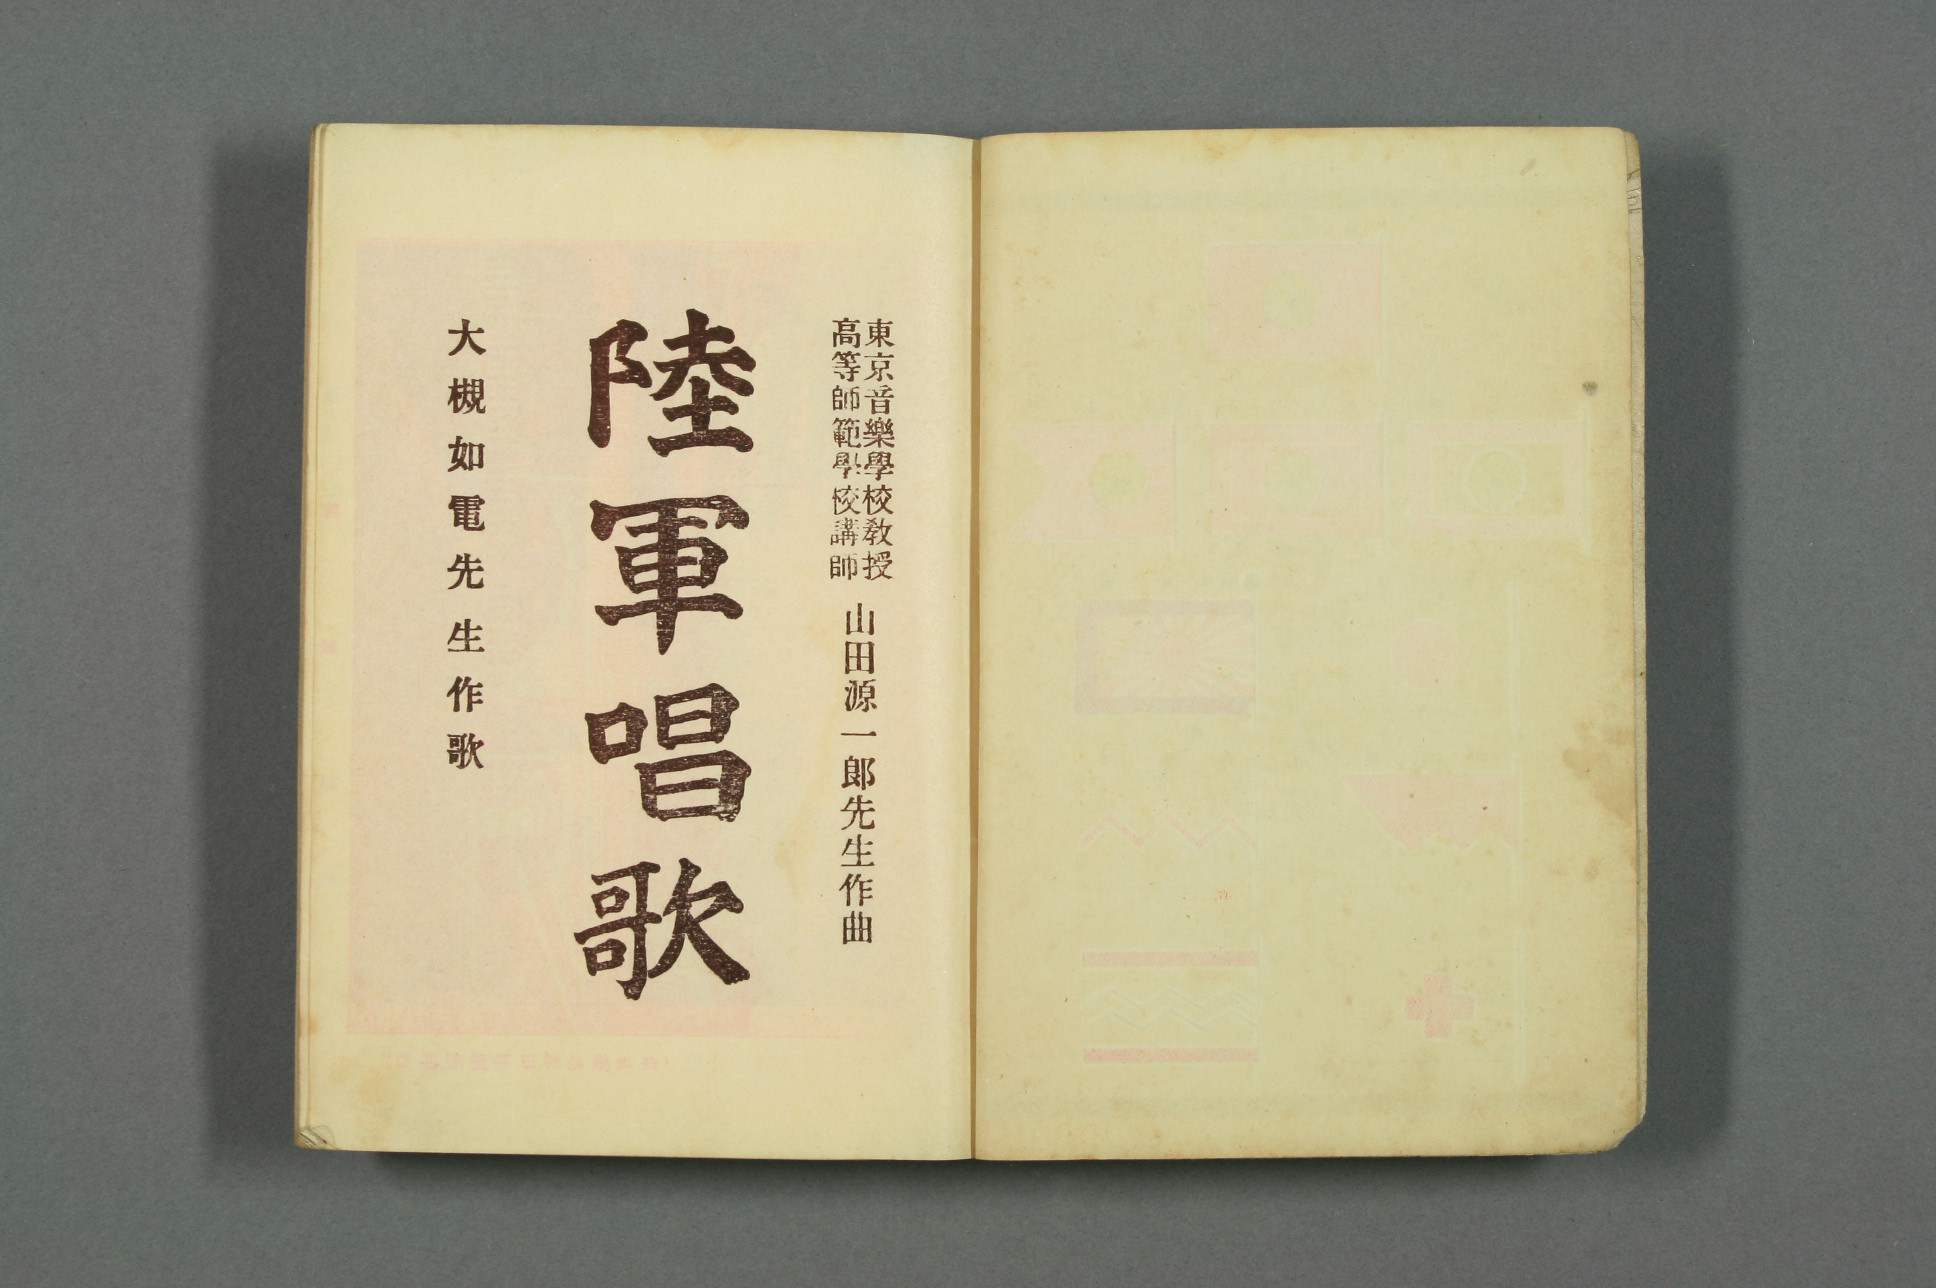 東京音樂學校教授
高等師範學校講師
山田源一郎先生作曲
陸軍唱歌
大槻如電先生作歌